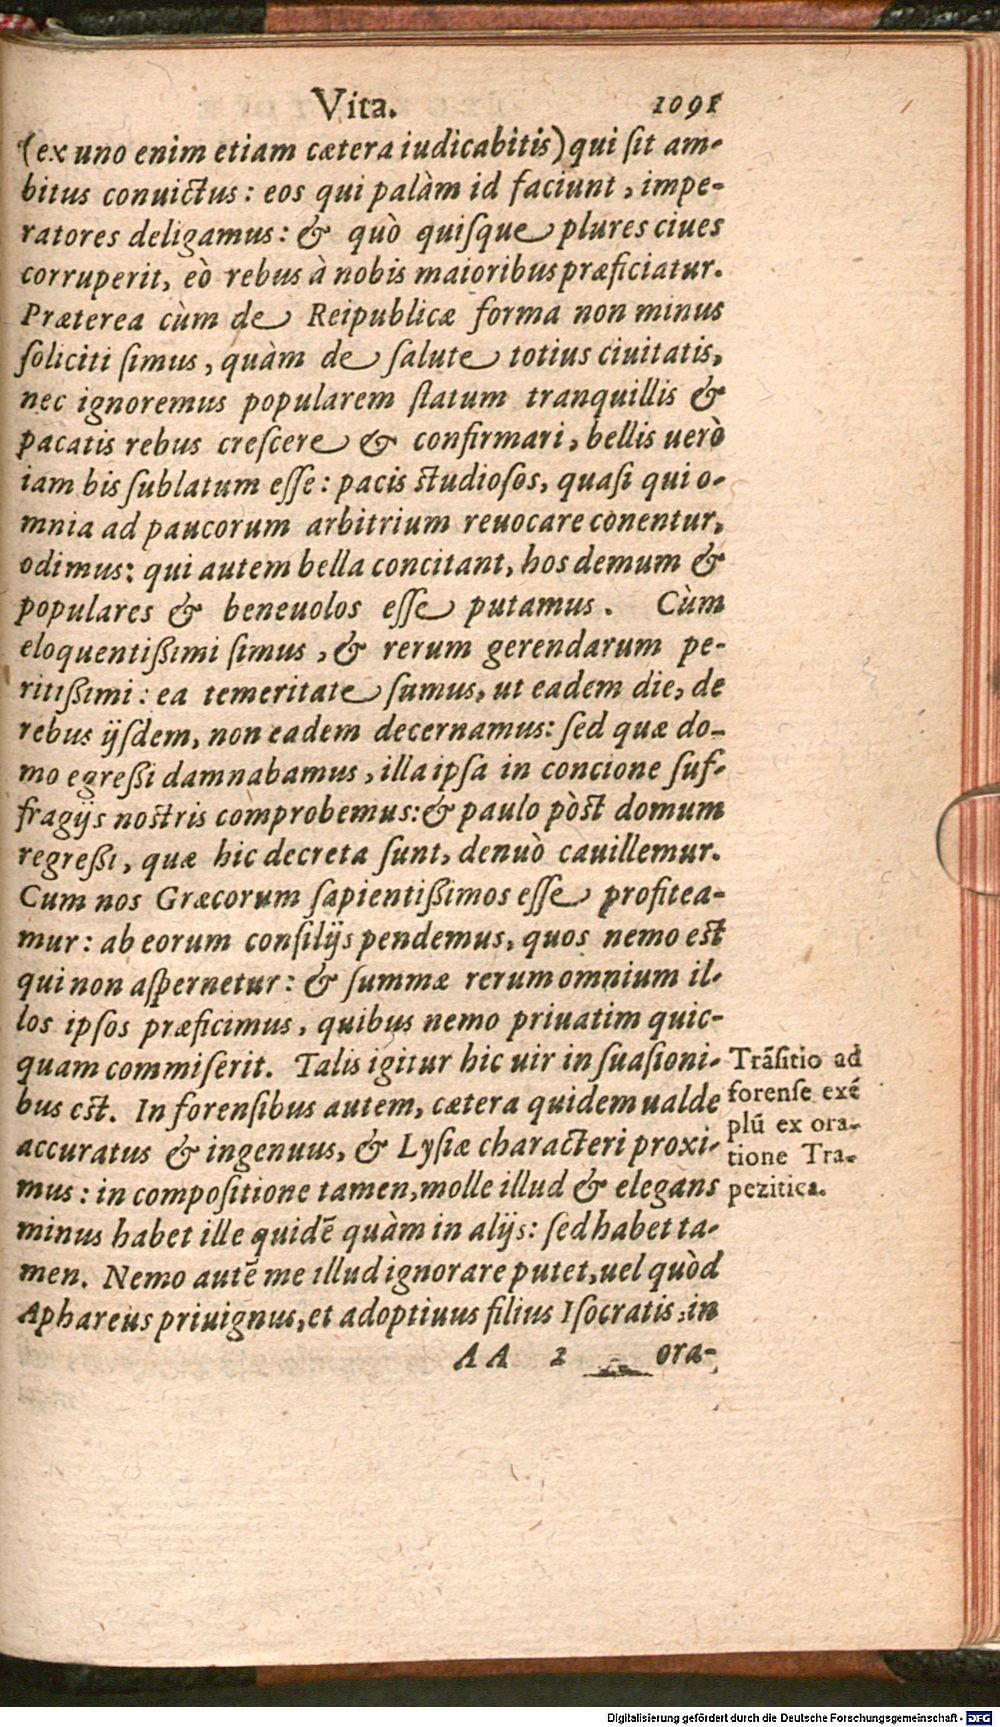 Vita. 1091
(ex uno enim etiam cætera iudicabitis) qui ſit am-
bitus conuictus: eos qui palàm id faciunt, impe-
ratores deligamus: & quò quiſque plures ciues
corruperit, eò rebus à nobis maioribus præficiatur.
Præterea cùm de Reipublicæ forma non minus
ſoliciti ſimus, quàm de ſalute totius ciuitatis,
nec ignoremus popularem ſtatum tranquillis &
pacatis rebus creſcere & confirmari, bellis uerò
iam bis ſublatum eſſe: pacis ſtudioſos, quaſi qui o-
mnia ad paucorum arbitrium reuocare conentur,
odimus: qui autem bella concitant, hos demum &
populares & beneuolos eſſe putamus. Cùm
eloquentißimi ſimus, & rerum gerendarum pe-
ritißimi: ea temeritate ſumus, ut eadem die, de
rebus ijſdem, non eadem decernamus: ſed quæ do-
mo egreßi damnabamus, illa ipſa in concione ſuf-
fragijs noſtris comprobemus: & paulo pòſt domum
regreßi, quæ hic decreta ſunt, denuò cauillemur.
Cum nos Græcorum ſapientißimos eſſe profitea-
mur: ab eorum conſilijs pendemus, quos nemo eſt
qui non aſpernetur: & ſummæ rerum omnium il-
los ipſos præficimus, quibus nemo priuatim quic-
quam commiſerit. Talis igitur hic uir in ſuaſioni-
bus eſt. In forenſibus autem, cætera quidem ualde
accuratus & ingenuus, & Lyſiæ characteri proxi-
mus: in compoſitione tamen, molle illud & elegans
minus habet ille quidē quàm in alijs: ſed habet ta-
men. Nemo autē me illud ignorare putet, uel quòd
Aphareus priuignus, et adoptiuus filius Iſocratis, in
AA 2 ora-
Trāſitio ad
forenſe exē
plū ex ora-
tione Tra-
pezitica.
Digitalisierung gefördert durch die Deutsche Forschungsgemeinschaft - DFG